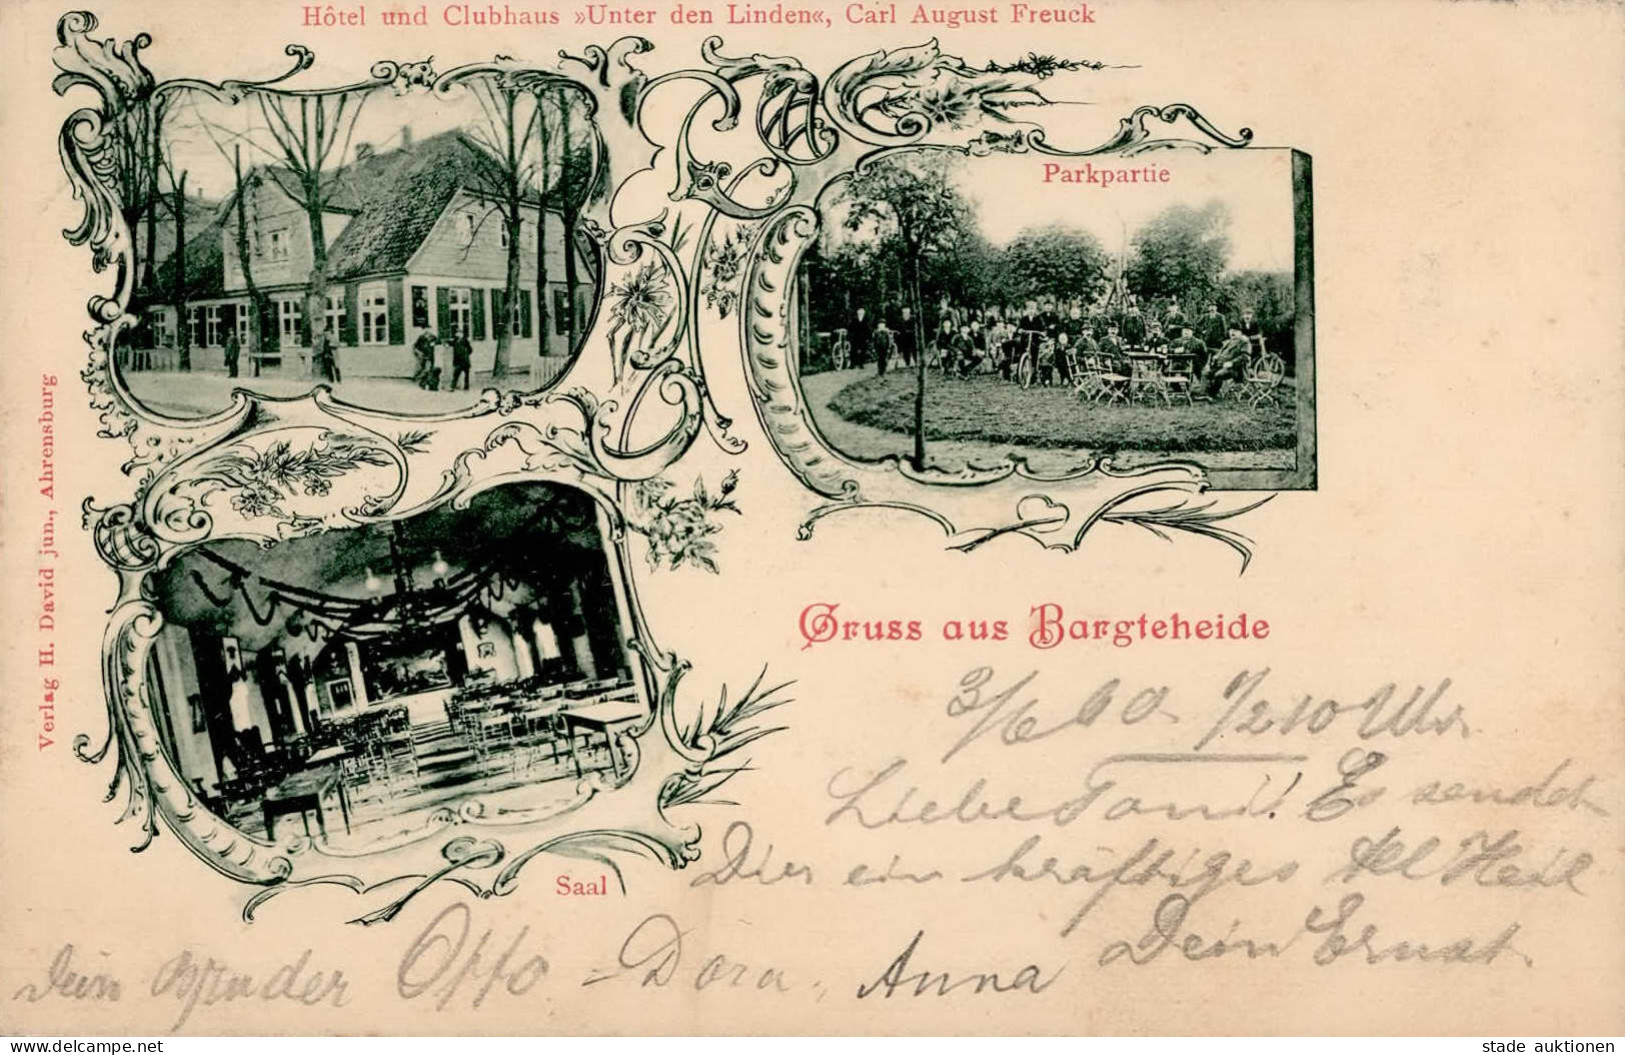 Hôtel und Clubhaus »Unter den Linden«, Carl August Freuck
Parkpartie
Verlag H. David jun., Ahrensburg
Saal
Gruss aus Bargteheide
3/6 00 1/2 10 Uhr
Liebe Toni! Es sendet
Dir ein kräftiges All Heil
Dein Ernst.
Dein Bruder Otto = Dora, Anna
www.delcampe.net
stade auktionen